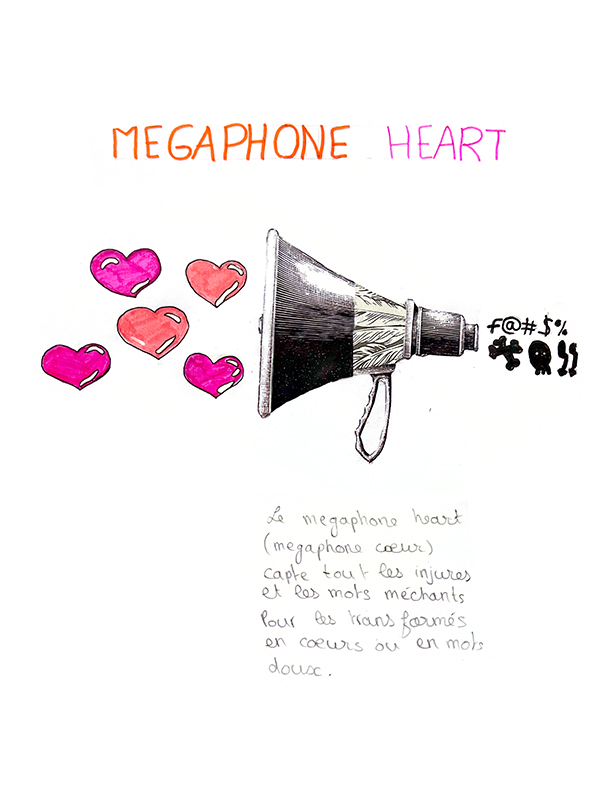 MEGAPHONE HEART
f@#$%
Le megaphone heart
(megaphone cœur)
capte tout les injures
et les mots méchants
Pour les transformés
en cœurs ou en mots
doux.